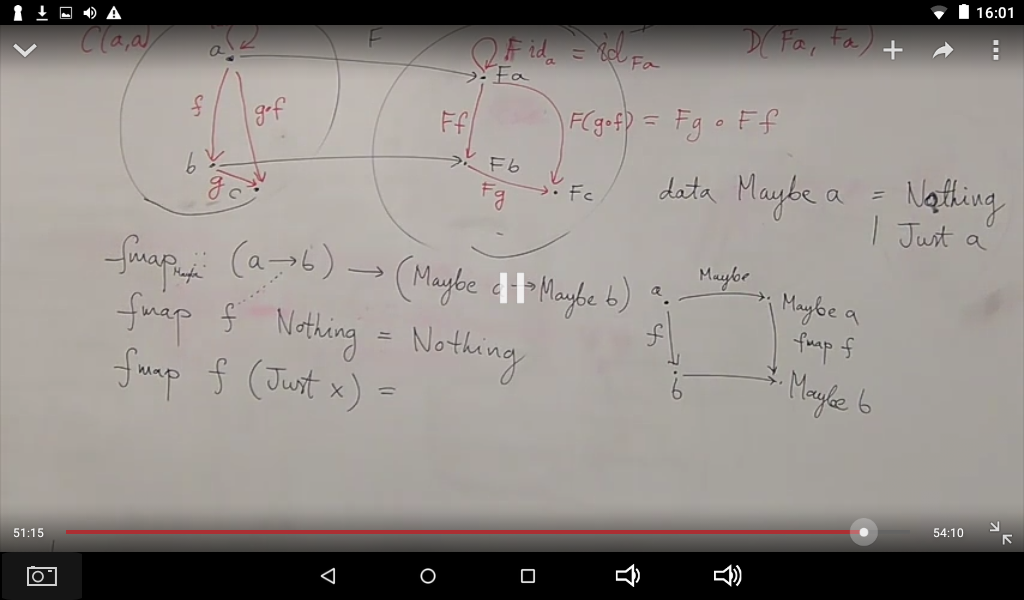 16:01
C(a,a)
a
F
F id_a = id_Fa
D(Fa, Fa)
Fa
f
g∘f
Ff
F(g∘f) = Fg ∘ Ff
b
g
c
Fb
Fg
Fc
data Maybe a = Nothing
| Just a
fmap_Maybe :: (a → b) → (Maybe a → Maybe b)
fmap f Nothing = Nothing
fmap f (Just x) =
a
Maybe
Maybe a
f
fmap f
b
Maybe b
51:15
54:10